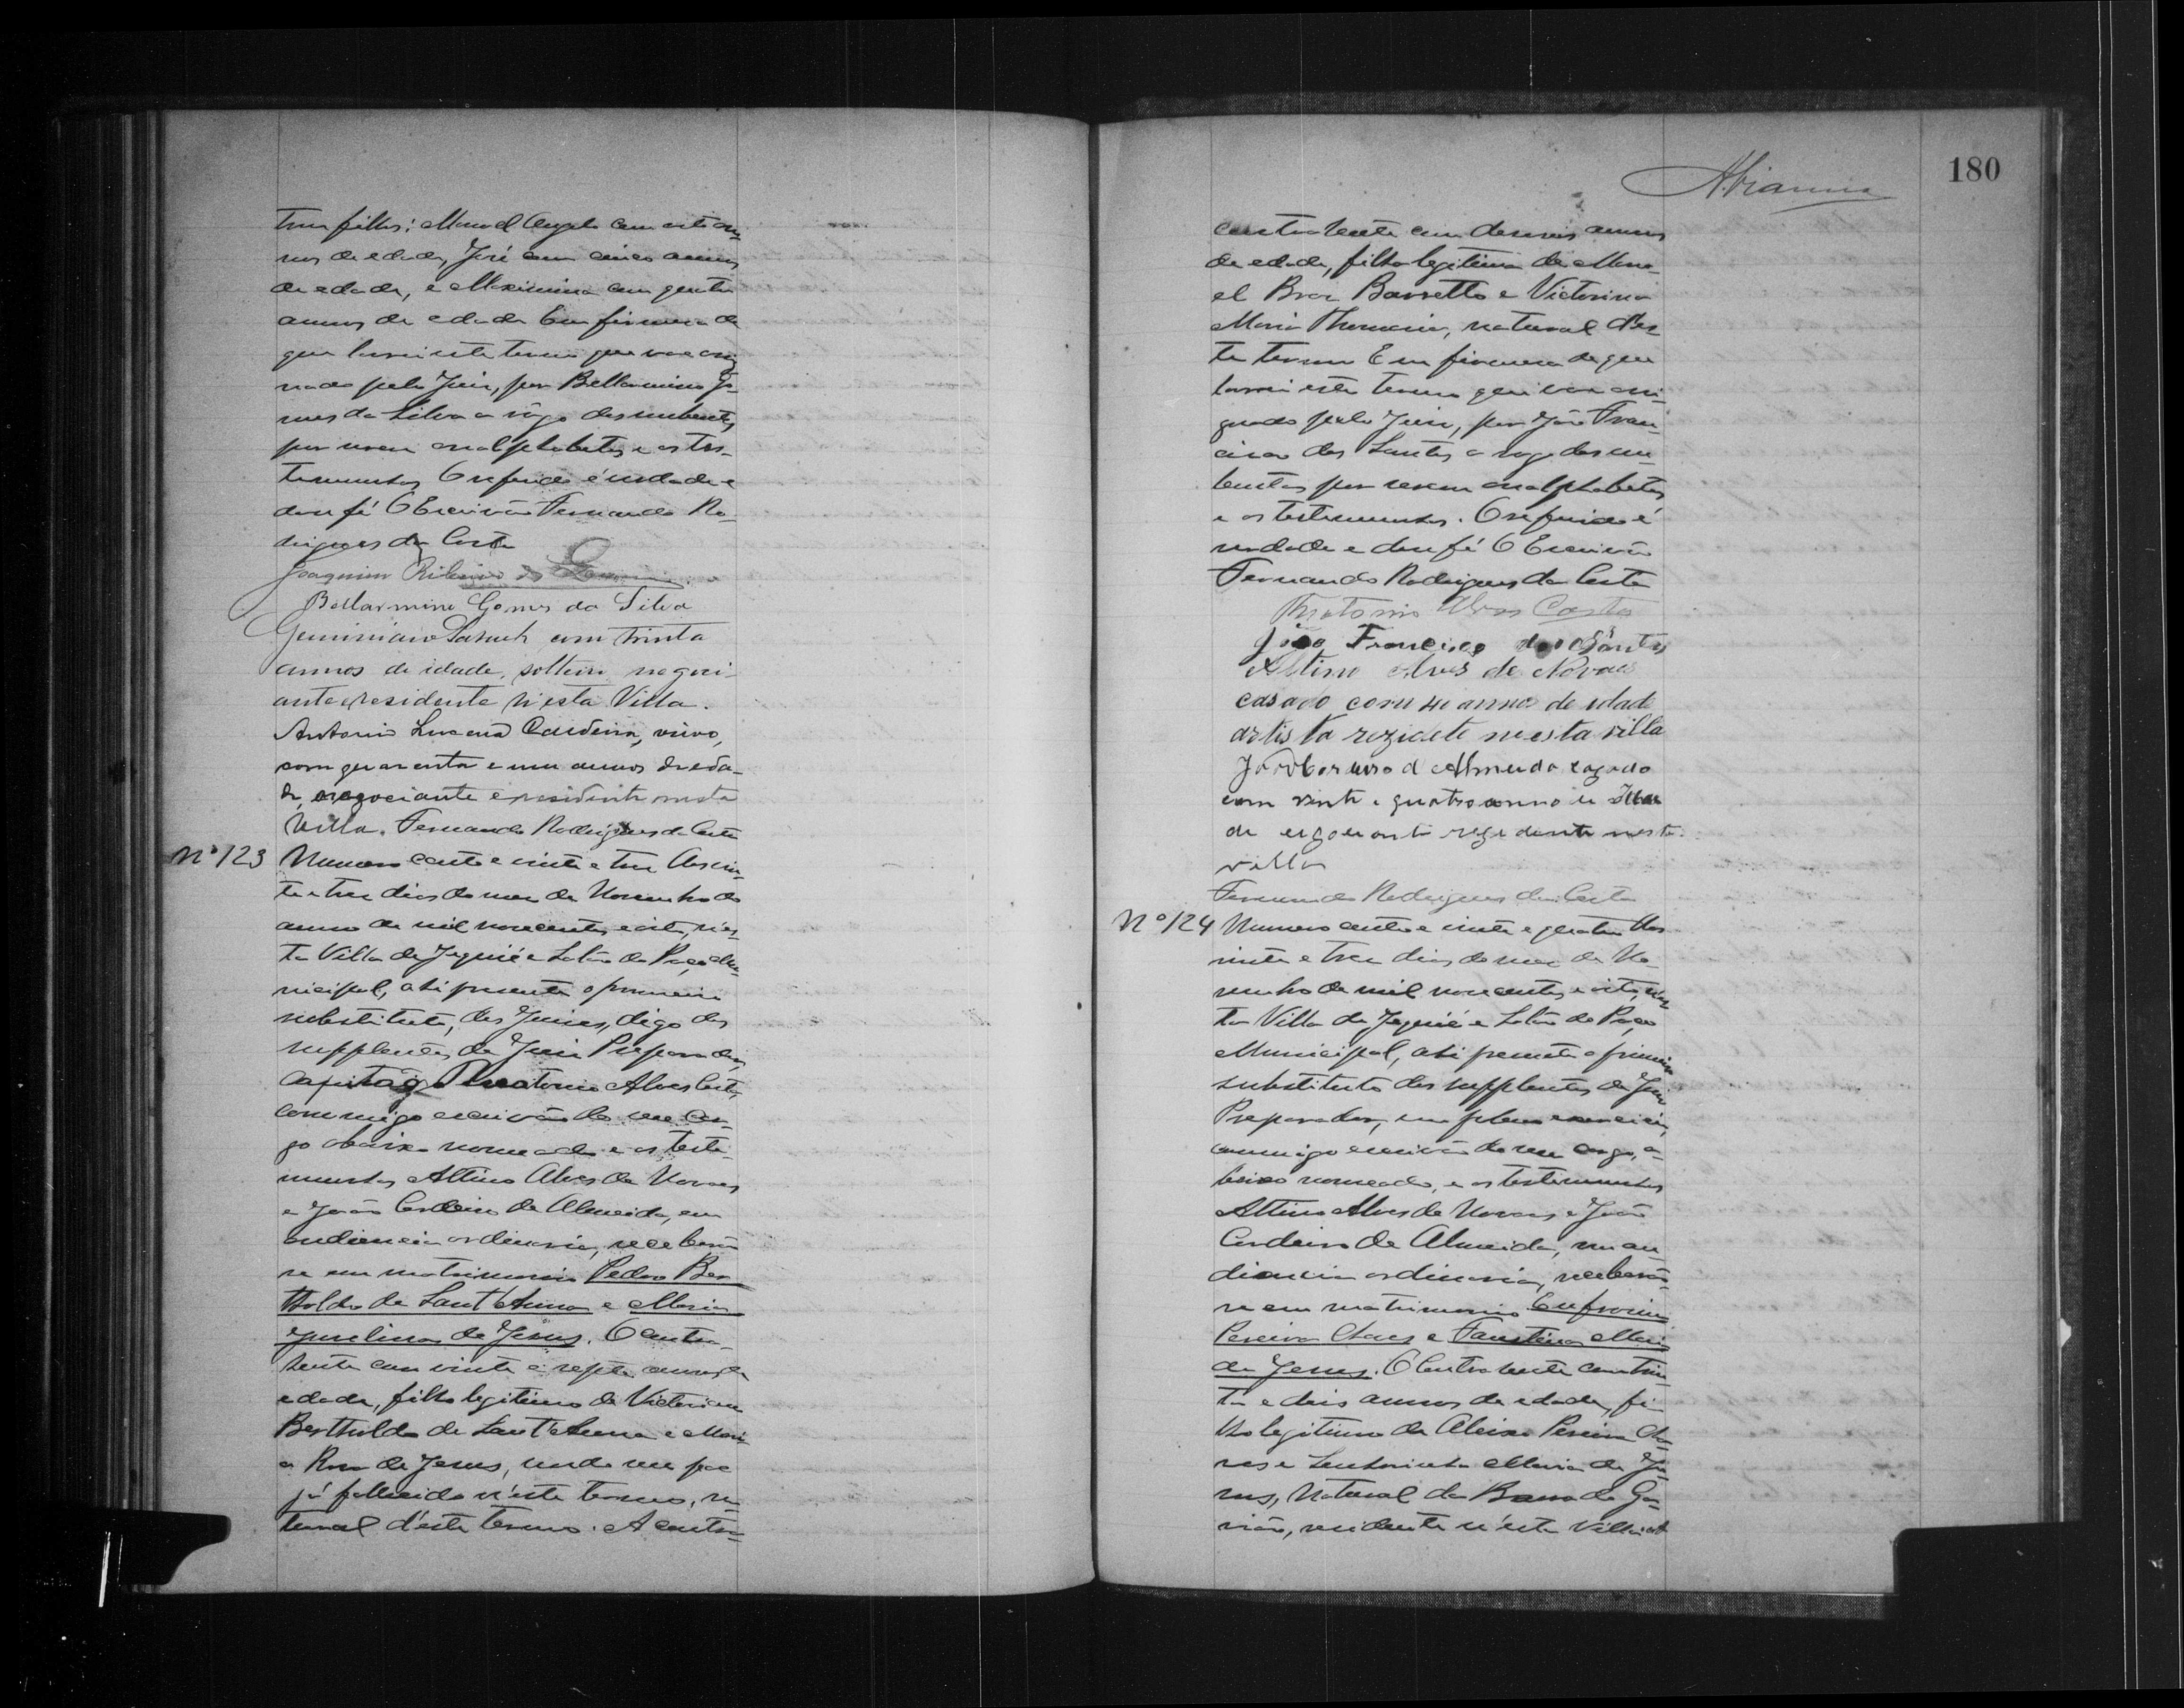 tres filhos: Manoel Angelo com oito an-
nos de edade, José com cinco annos
de edade, e Maximina com quatro
annos de edade Em firmeza do
que lavrei este termo que vae assig-
nado pelo Juiz, por Bellarmino Go-
mes da Silva a rôgo dos nubentes,
por serem analphabetos e as tes-
temunhas O referido é verdade e
dou fé O Escrivão Fernando Ro-
drigues da Costa
Joaquim Ribeiro de
Bellarmino Gomes da Silva
Geminiano com trinta
annos de idade, solteiro negoci-
ante e residente n'esta Villa.
Antonio Lucena Caldeira, viuvo,
com quarenta e um annos de eda-
de, negociante e residente nesta
Villa. Fernando Rodrigues da Costa
Nº 123 Numero cento e vinte e tres Aos vin-
te e tres dias do mez de Novembro do
anno de mil novecentos e oito, n'es-
ta Villa de Jequié e Salão do Paço Mu-
nicipal, ahi presente o primeiro
substituto, dos Juizes, digo dos
supplentes do Juiz Preparador,
Capitão Alves Costa,
commigo escrivão do seu car-
go abaixo nomeado e as teste-
munhas Altino Alves de Novaes
e João Cordeiro de Almeida, em
audiencia ordinaria, receberão
se em matrimonio Pedro Ber-
tholdo de Sant'Anna e Maria
de Jesus. O contra-
hente com vinte e sete annos de
edade, filho legitimo de Victoriano
Bertholdo de Sant'Anna e Mari-
a Rosa de Jesus, sendo seu pae
já fallecido n'este termo, na-
tural d'este termo. A contra-
180
contrahente com deseseis annos
de edade, filha legitima de Mano-
el Braz Barretto e Victorina
Maria natural d'es-
te termo Em firmeza do que
lavrei este termo que vae assi-
gnado pelo Juiz, por João Fran-
cisco dos Santos a rogo dos nu-
bentes por serem analphabetos
e as testemunhas. O referido é
verdade e dou fé O Escrivão
Fernando Rodrigues da Costa
Alves Costa
João Francisco dos Santos
Altino Alves de Novaes
casado com 40 annos de idade
artista rezidete nesta villa
João Cordeiro d Almeida cazado
com vinte e quatro anno de Ida
de negociante rezidente nesta
villa
Fernando Rodrigues da Costa
Nº 124 Numero cento e vinte e quatro Aos
vinte e tres dias do mez de No-
vembro de mil novecentos e oito, n'es-
ta Villa de Jequié e Salão do Paço
Municipal, ahi presente o primeiro
substituto dos supplentes do Juiz
Preparador, em pleno exercicio,
commigo escrivão do seu cargo, a-
baixo nomeado, e as testemunhas
Altino Alves de Novaes e João
Cordeiro de Almeida, em au-
diencia ordinaria, receberão
se em matrimonio
Pereira Chaves e Faustina Maria
de Jesus. O Contrahente com trin-
ta e dois annos de edade, fi-
lho legitimo de Aleixo Pereira Cha-
ves e Maria de Je-
sus, Natural da Barra do Ga-
vião, residente n'esta Villa.